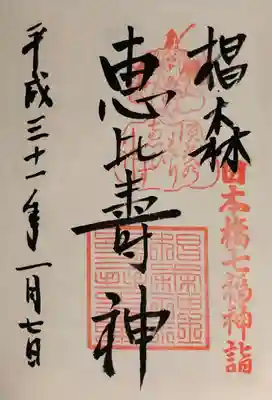 椙森
日本橋七福神詣
恵比寿神
平成三十一年一月七日